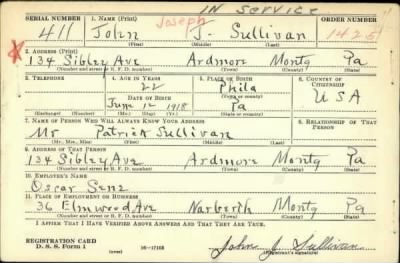 IN SERVICE
SERIAL NUMBER 1. NAME (Print) Joseph ORDER NUMBER
411 John J. Sullivan 1425
(First) (Middle) (Last)
2. ADDRESS (Print)
134 Sibley Ave Ardmore Montg Pa
(Number and street or R. F. D. number) (Town) (County) (State)
3. TELEPHONE 4. AGE IN YEARS 5. PLACE OF BIRTH 6. COUNTRY OF CITIZENSHIP
22 Phila
DATE OF BIRTH (Town or county)
June 12 1918 Pa USA
(Exchange) (Number) (Mo.) (Day) (Yr.) (State or country)
7. NAME OF PERSON WHO WILL ALWAYS KNOW YOUR ADDRESS 8. RELATIONSHIP OF THAT PERSON
Mr Patrick Sullivan
(Mr., Mrs., Miss) (First) (Middle) (Last)
9. ADDRESS OF THAT PERSON
134 Sibley Ave Ardmore Montg Pa
(Number and street or R. F. D. number) (Town) (County) (State)
10. EMPLOYER'S NAME
Oscar Senz
11. PLACE OF EMPLOYMENT OR BUSINESS
36 Elmwood Ave Narberth Montg Pa
(Number and street or R. F. D. number) (Town) (County) (State)
I AFFIRM THAT I HAVE VERIFIED ABOVE ANSWERS AND THAT THEY ARE TRUE.
REGISTRATION CARD
D. S. S. Form 1 (over) 16-17105 John J Sullivan
(Registrant's signature)